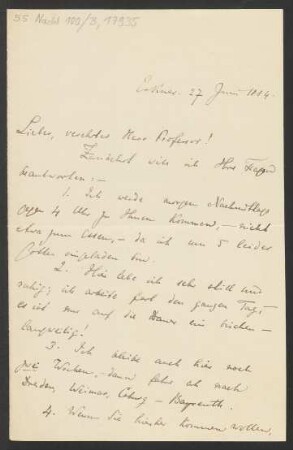 Nachl 109/3, 17935
27 Juni 1884.
Lieber, verehrter Herr Professor!
Zunächst will ich Ihre Fragen
beantworten: –
1. Ich werde morgen Nachmittag
gegen 4 Uhr zu Ihnen kommen, – nicht
etwa zum Essen, – da ich um 5 leider
eingeladen bin.
2. Hier lebe ich sehr still und
ruhig; ich arbeite fast den ganzen Tag,
es ist nur auf die Dauer ein bischen
langweilig!
3. Ich bleibe auch hier noch
zwei Wochen, – dann fahre ich nach
Dresden, Weimar, Coburg – Bayreuth.
4. Wenn Sie hierher kommen wollen,